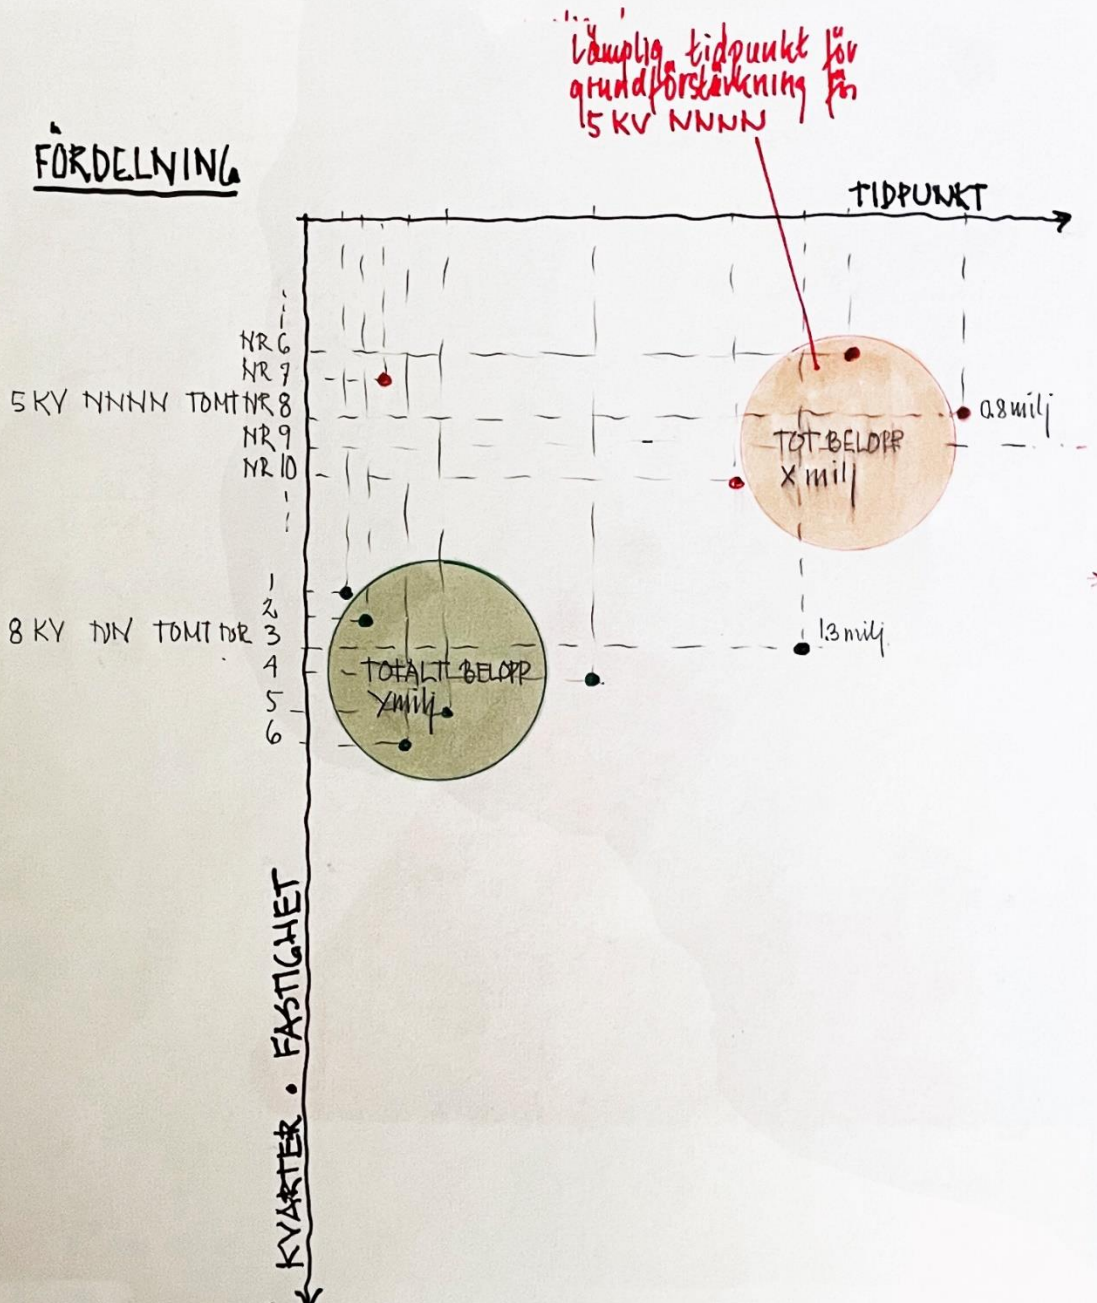 Lämplig tidpunkt för
grundförstärkning för
5 KV NNNN
FÖRDELNING
TIDPUNKT
NR 6
NR 7
5 KV NNNN TOMT NR 8
NR 9
NR 10
0.8 milj
TOT BELOPP
X milj
1
2
8 KV NN TOMT NR 3
4
5
6
1.3 milj
TOTALT BELOPP
Y milj
KVARTER · FASTIGHET